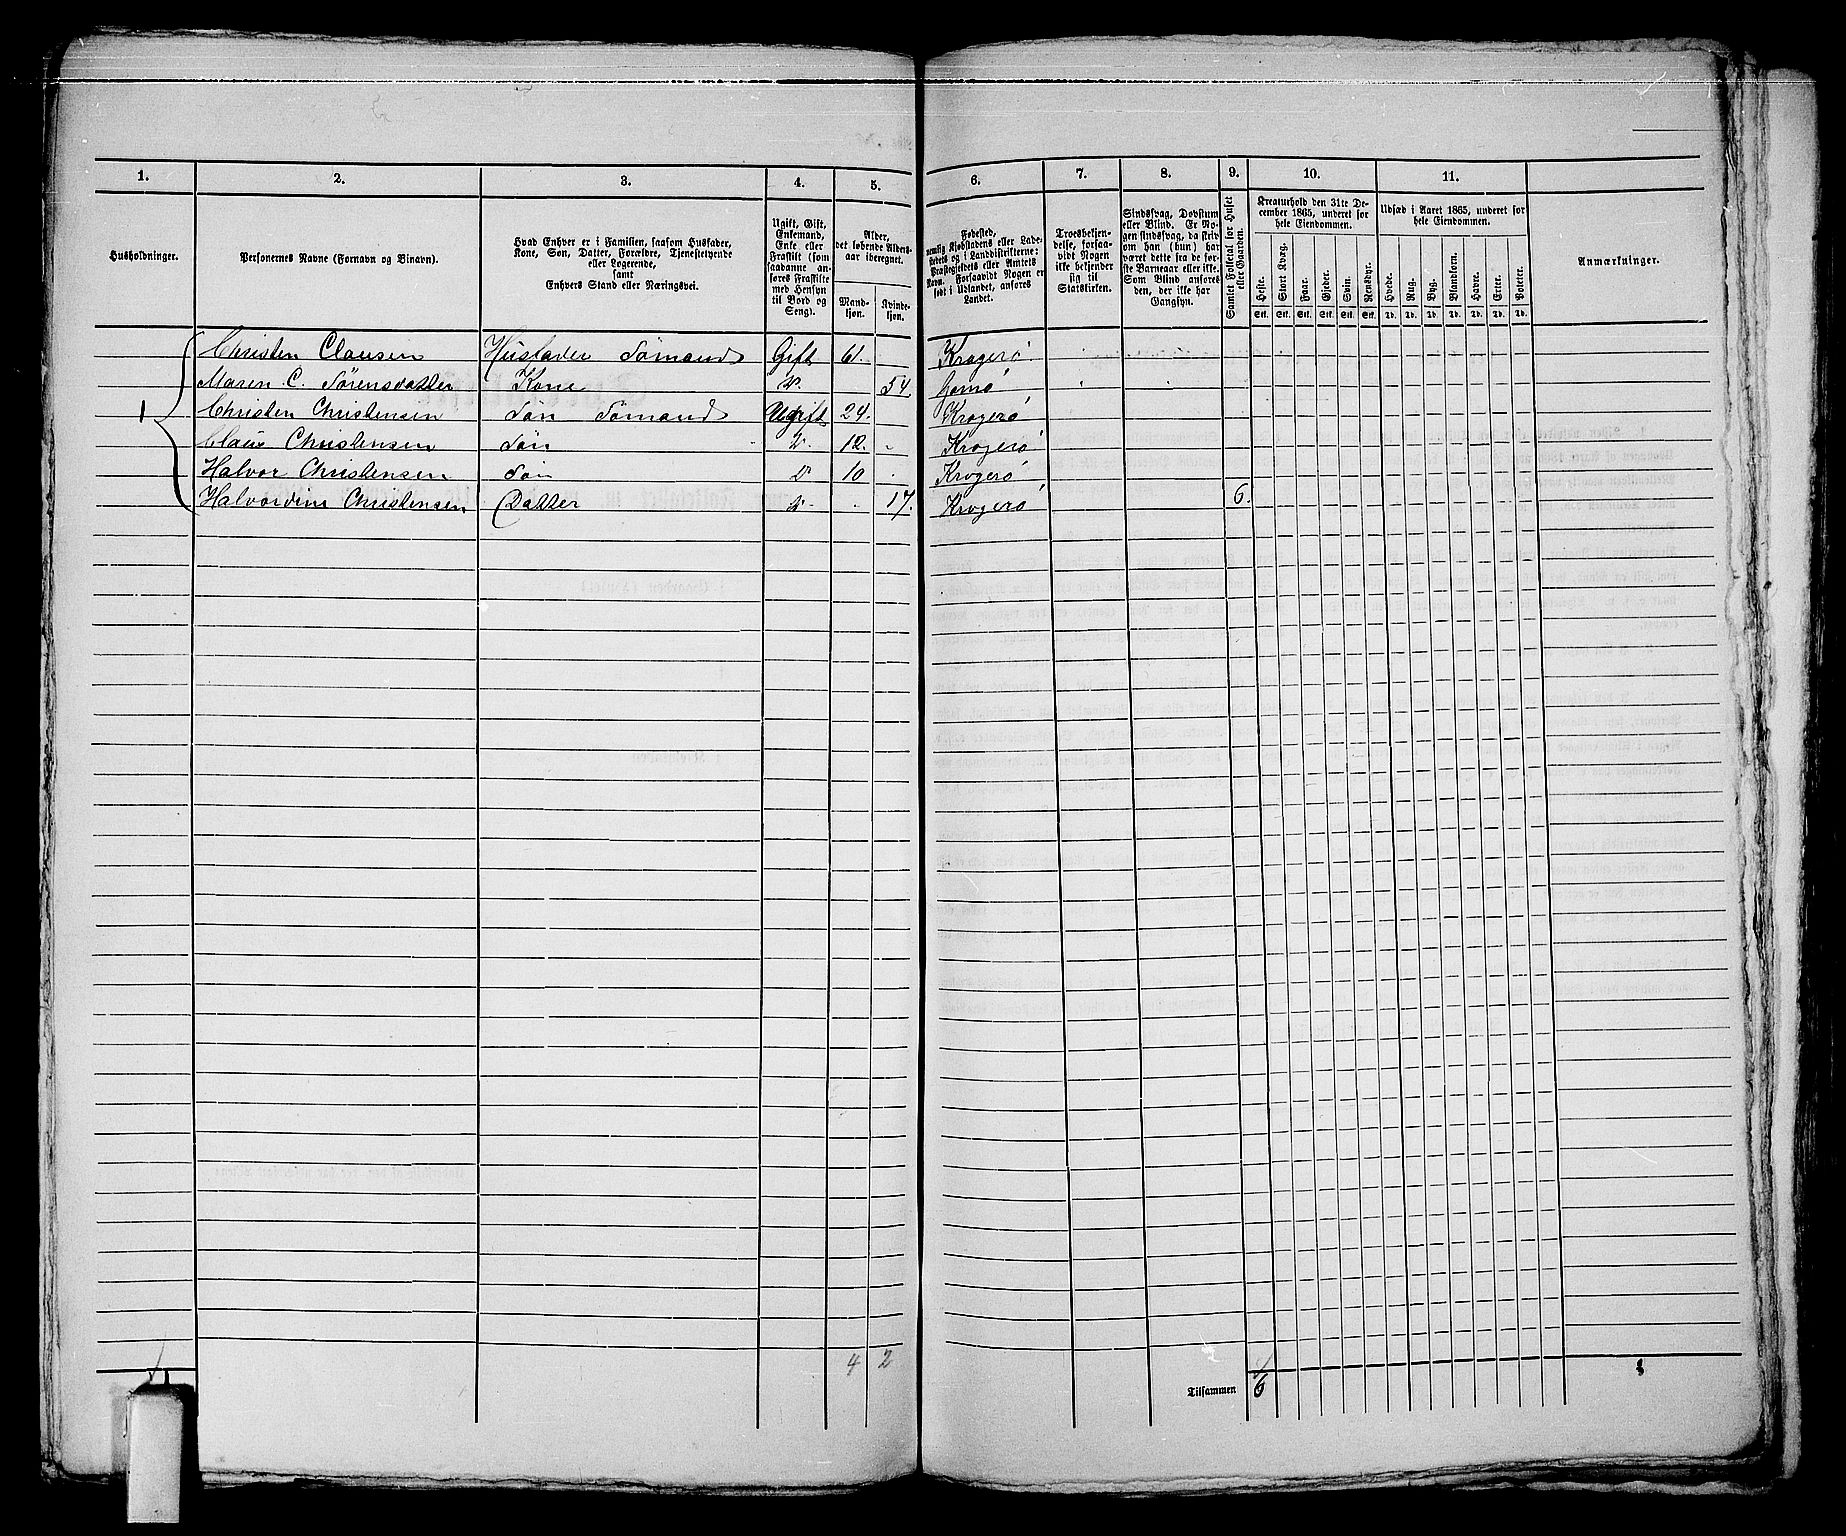 1. 2. 3. 4. 5. 6. 7. 8. 9. 10. 11.
Husholdninger.
Personernes Navne (Fornavn og Binavn).
Hvad Enhver er i Familien, saasom Husfader,
Kone, Søn, Datter, Forældre, Tjenestetyende
eller Logerende,
samt
Enhvers Stand eller Næringsvei.
Ugift, Gift,
Enkemand,
Enke eller
Fraskilt (som
saadanne an-
føres Fraskilte
med Hensyn
til Bord og
Seng).
Alder,
det løbende Alders-
aar iberegnet.
Mand-
kjøn.
Kvinde-
kjøn.
Fødested,
nemlig Kjøbstadens eller Lade-
stedets og i Landdistrikterne:
Præstegjeldets eller Amtets
Navn. Forsaavidt Nogen er
født i Udlandet, anføres
Landet.
Troesbekjen-
delse, forsaa-
vidt Nogen
ikke bekjender
sig til
Statskirken.
Sindssvag, Døvstum
eller Blind. Er No-
gen sindssvag, da skriv
om han (hun) har
været dette fra de før-
ste Barneaar eller ikke.
Som Blind anføres
den, der ikke har
Gangsyn.
Samlet Folketal for Huset
eller Gaarden.
Kreaturhold den 31te De-
cember 1865, underet for
hele Eiendommen.
Heste. Stort Kvæg. Faar. Gjeder. Svin. Rensdyr.
Stk. Stk. Stk. Stk. Stk. Stk.
Udsæd i Aaret 1865, underet for
hele Eiendommen.
Hvede. Rug. Byg. Blandkorn. Havre. Erter. Poteter.
Td. Td. Td. Td. Td. Td. Td.
Anmærkninger.
1
Christen Clausen Husfader Sømand Gift 61. Kragerø
Maren C. Sørensdatter Kone do 54
Christen Christensen Søn Sømand Ugift 24. Kragerø
Claus Christensen Søn do 12. Kragerø
Halvor Christensen Søn do 10 Kragerø
Halvordine Christensen Datter do 17. Kragerø 6.
4 2
Tilsammen 6